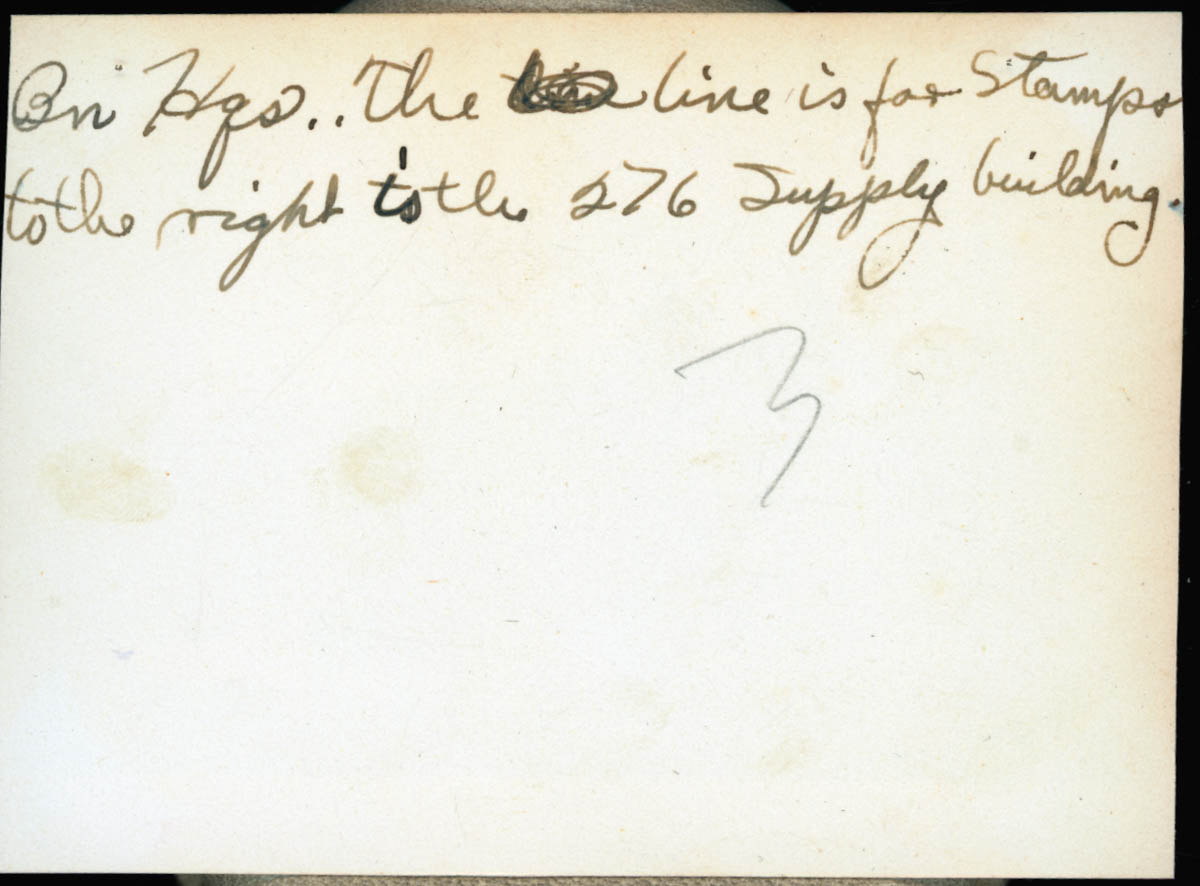 Bn Hqs.. The line is for Stamps
to the right is the 276 Supply building.
3